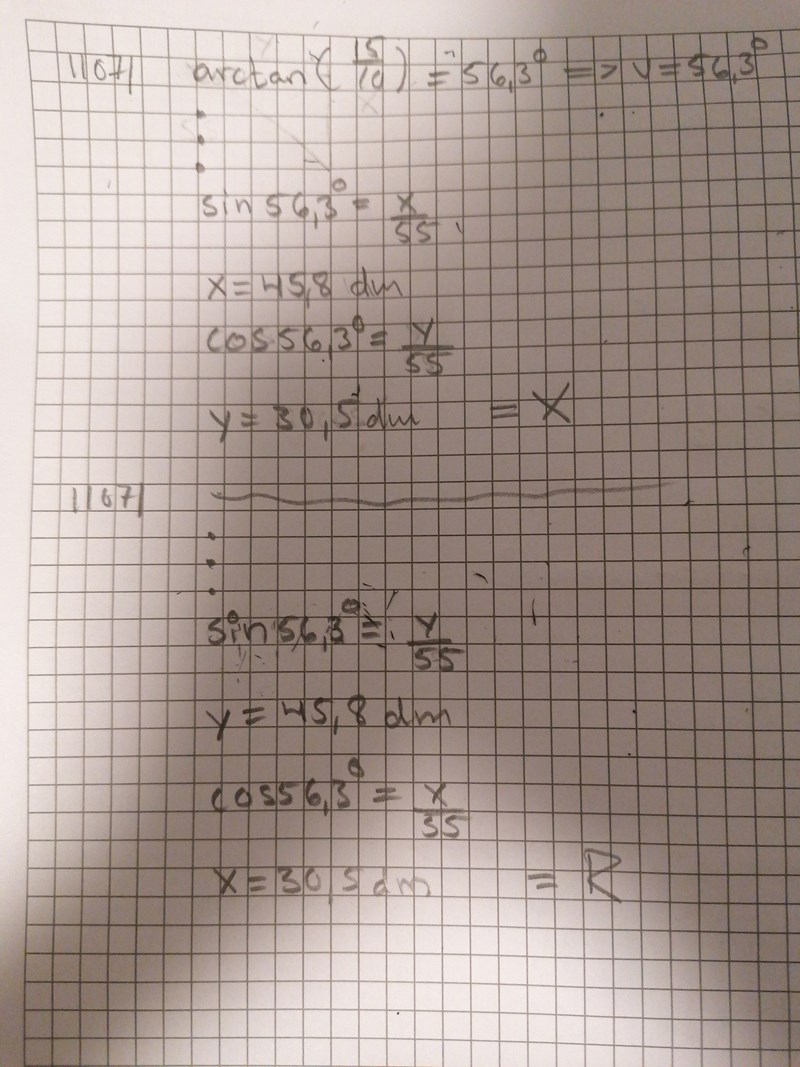 1107) arctan(15/10) = 56,3° => v = 56,3°
sin 56,3° = x/55
x = 45,8 dm
cos 56,3° = y/55
y = 30,5 dm = X
1107)
sin 56,3° = y/55
y = 45,8 dm
cos 56,3° = x/55
x = 30,5 dm = R